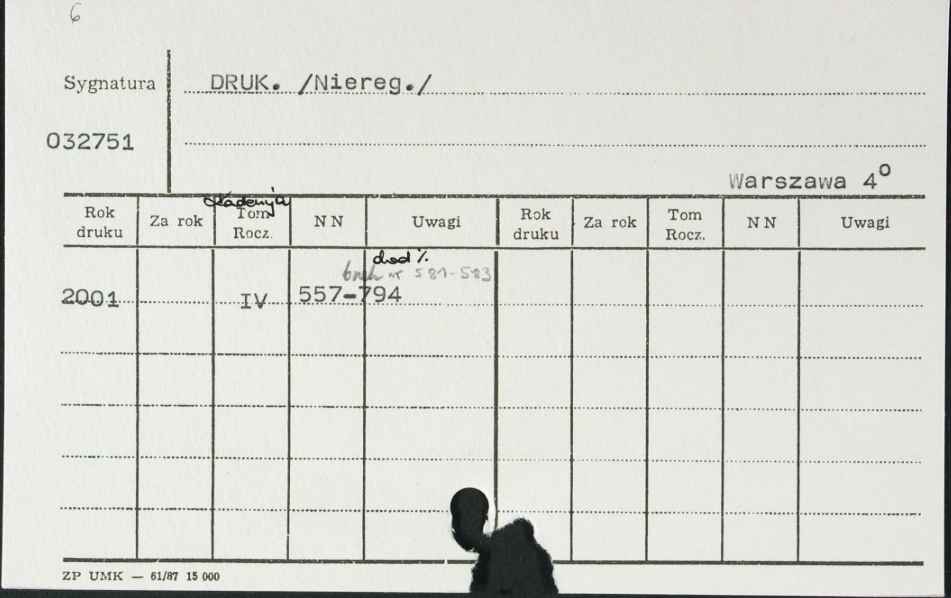 6
Sygnatura DRUK. /Niereg./
032751
Warszawa 4º
Rok druku Za rok Tom Rocz. NN Uwagi Rok druku Za rok Tom Rocz. NN Uwagi
Akademia
dod %
brak nr 581-583
2001 IV 557-794
ZP UMK — 61/87 15 000